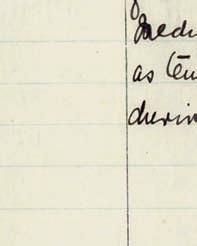 Medi
as Ten
durin